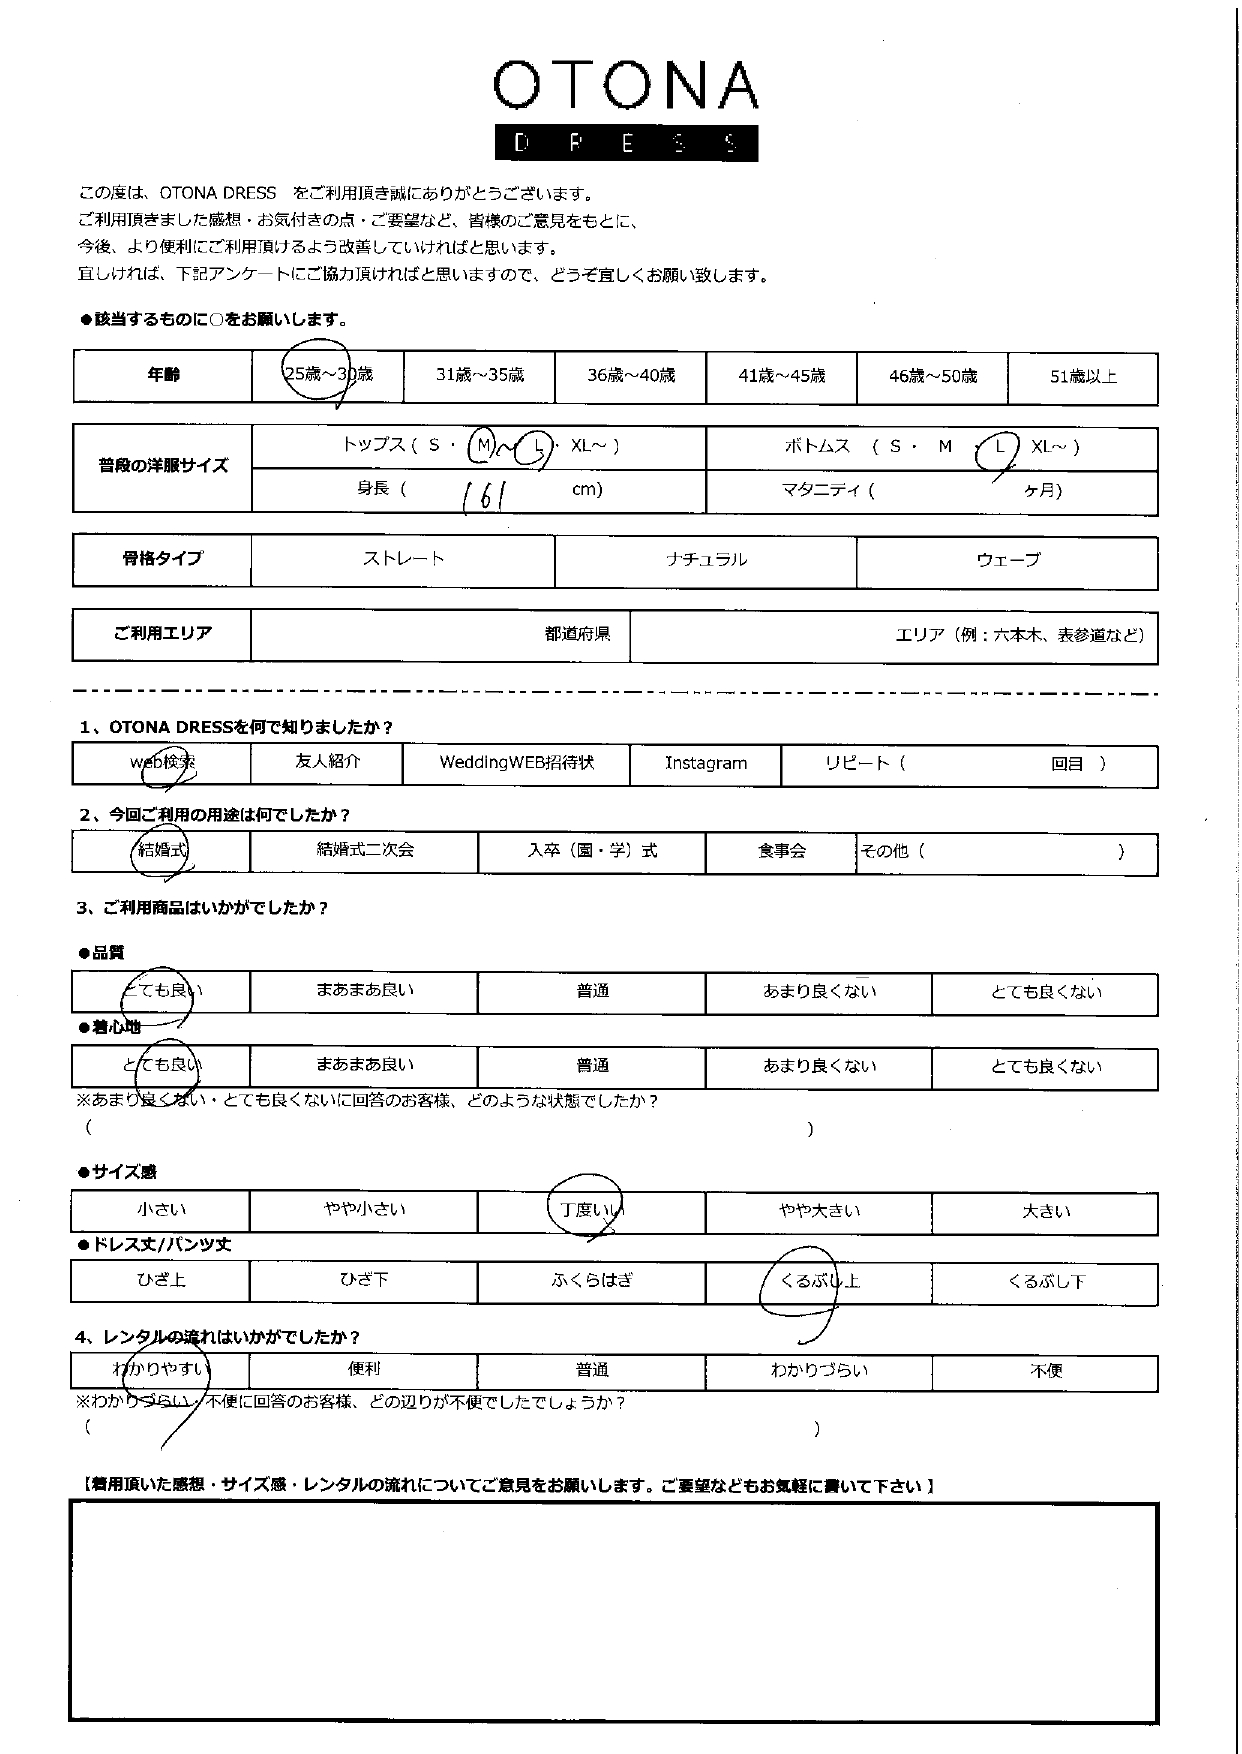 OTONA
DRESS
この度は、OTONA DRESS　をご利用頂き誠にありがとうございます。
ご利用頂きました感想・お気付きの点・ご要望など、皆様のご意見をもとに、
今後、より便利にご利用頂けるよう改善していければと思います。
宜しければ、下記アンケートにご協力頂ければと思いますので、どうぞ宜しくお願い致します。
●該当するものに○をお願いします。
年齢 25歳～30歳 31歳～35歳 36歳～40歳 41歳～45歳 46歳～50歳 51歳以上
普段の洋服サイズ トップス ( S ・ M ～ L ・ XL～ ) ボトムス ( S ・ M ・ L XL～ )
身長 ( 161 cm) マタニティ ( ヶ月)
骨格タイプ ストレート ナチュラル ウェーブ
ご利用エリア 都道府県 エリア（例：六本木、表参道など）
1、OTONA DRESSを何で知りましたか？
web検索 友人紹介 WeddingWEB招待状 Instagram リピート（ 回目 ）
2、今回ご利用の用途は何でしたか？
結婚式 結婚式二次会 入卒（園・学）式 食事会 その他（ ）
3、ご利用商品はいかがでしたか？
●品質
とても良い まあまあ良い 普通 あまり良くない とても良くない
●着心地
とても良い まあまあ良い 普通 あまり良くない とても良くない
※あまり良くない・とても良くないに回答のお客様、どのような状態でしたか？
( )
●サイズ感
小さい やや小さい 丁度いい やや大きい 大きい
●ドレス丈/パンツ丈
ひざ上 ひざ下 ふくらはぎ くるぶし上 くるぶし下
4、レンタルの流れはいかがでしたか？
わかりやすい 便利 普通 わかりづらい 不便
※わかりづらい・不便に回答のお客様、どの辺りが不便でしたでしょうか？
( )
【着用頂いた感想・サイズ感・レンタルの流れについてご意見をお願いします。ご要望などもお気軽に書いて下さい 】